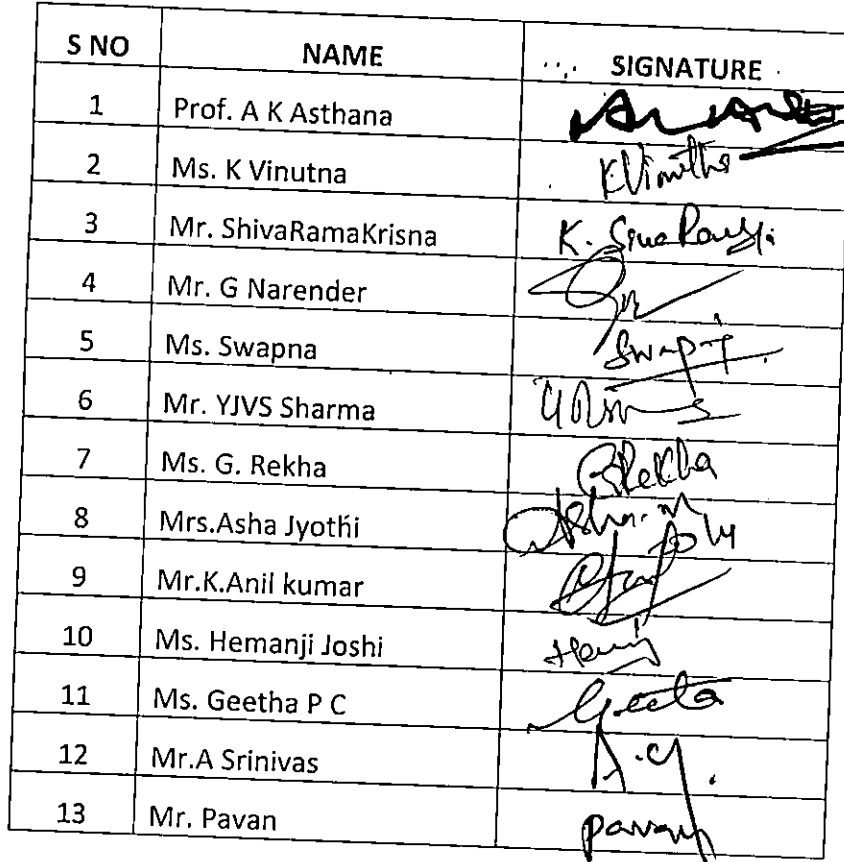 S NO NAME SIGNATURE
1 Prof. A K Asthana
2 Ms. K Vinutna K Vinutha
3 Mr. ShivaRamaKrisna K.
4 Mr. G Narender
5 Ms. Swapna
6 Mr. YJVS Sharma
7 Ms. G. Rekha GRekha
8 Mrs.Asha Jyothi
9 Mr.K.Anil kumar
10 Ms. Hemanji Joshi
11 Ms. Geetha P C Geeta
12 Mr.A Srinivas
13 Mr. Pavan pavan